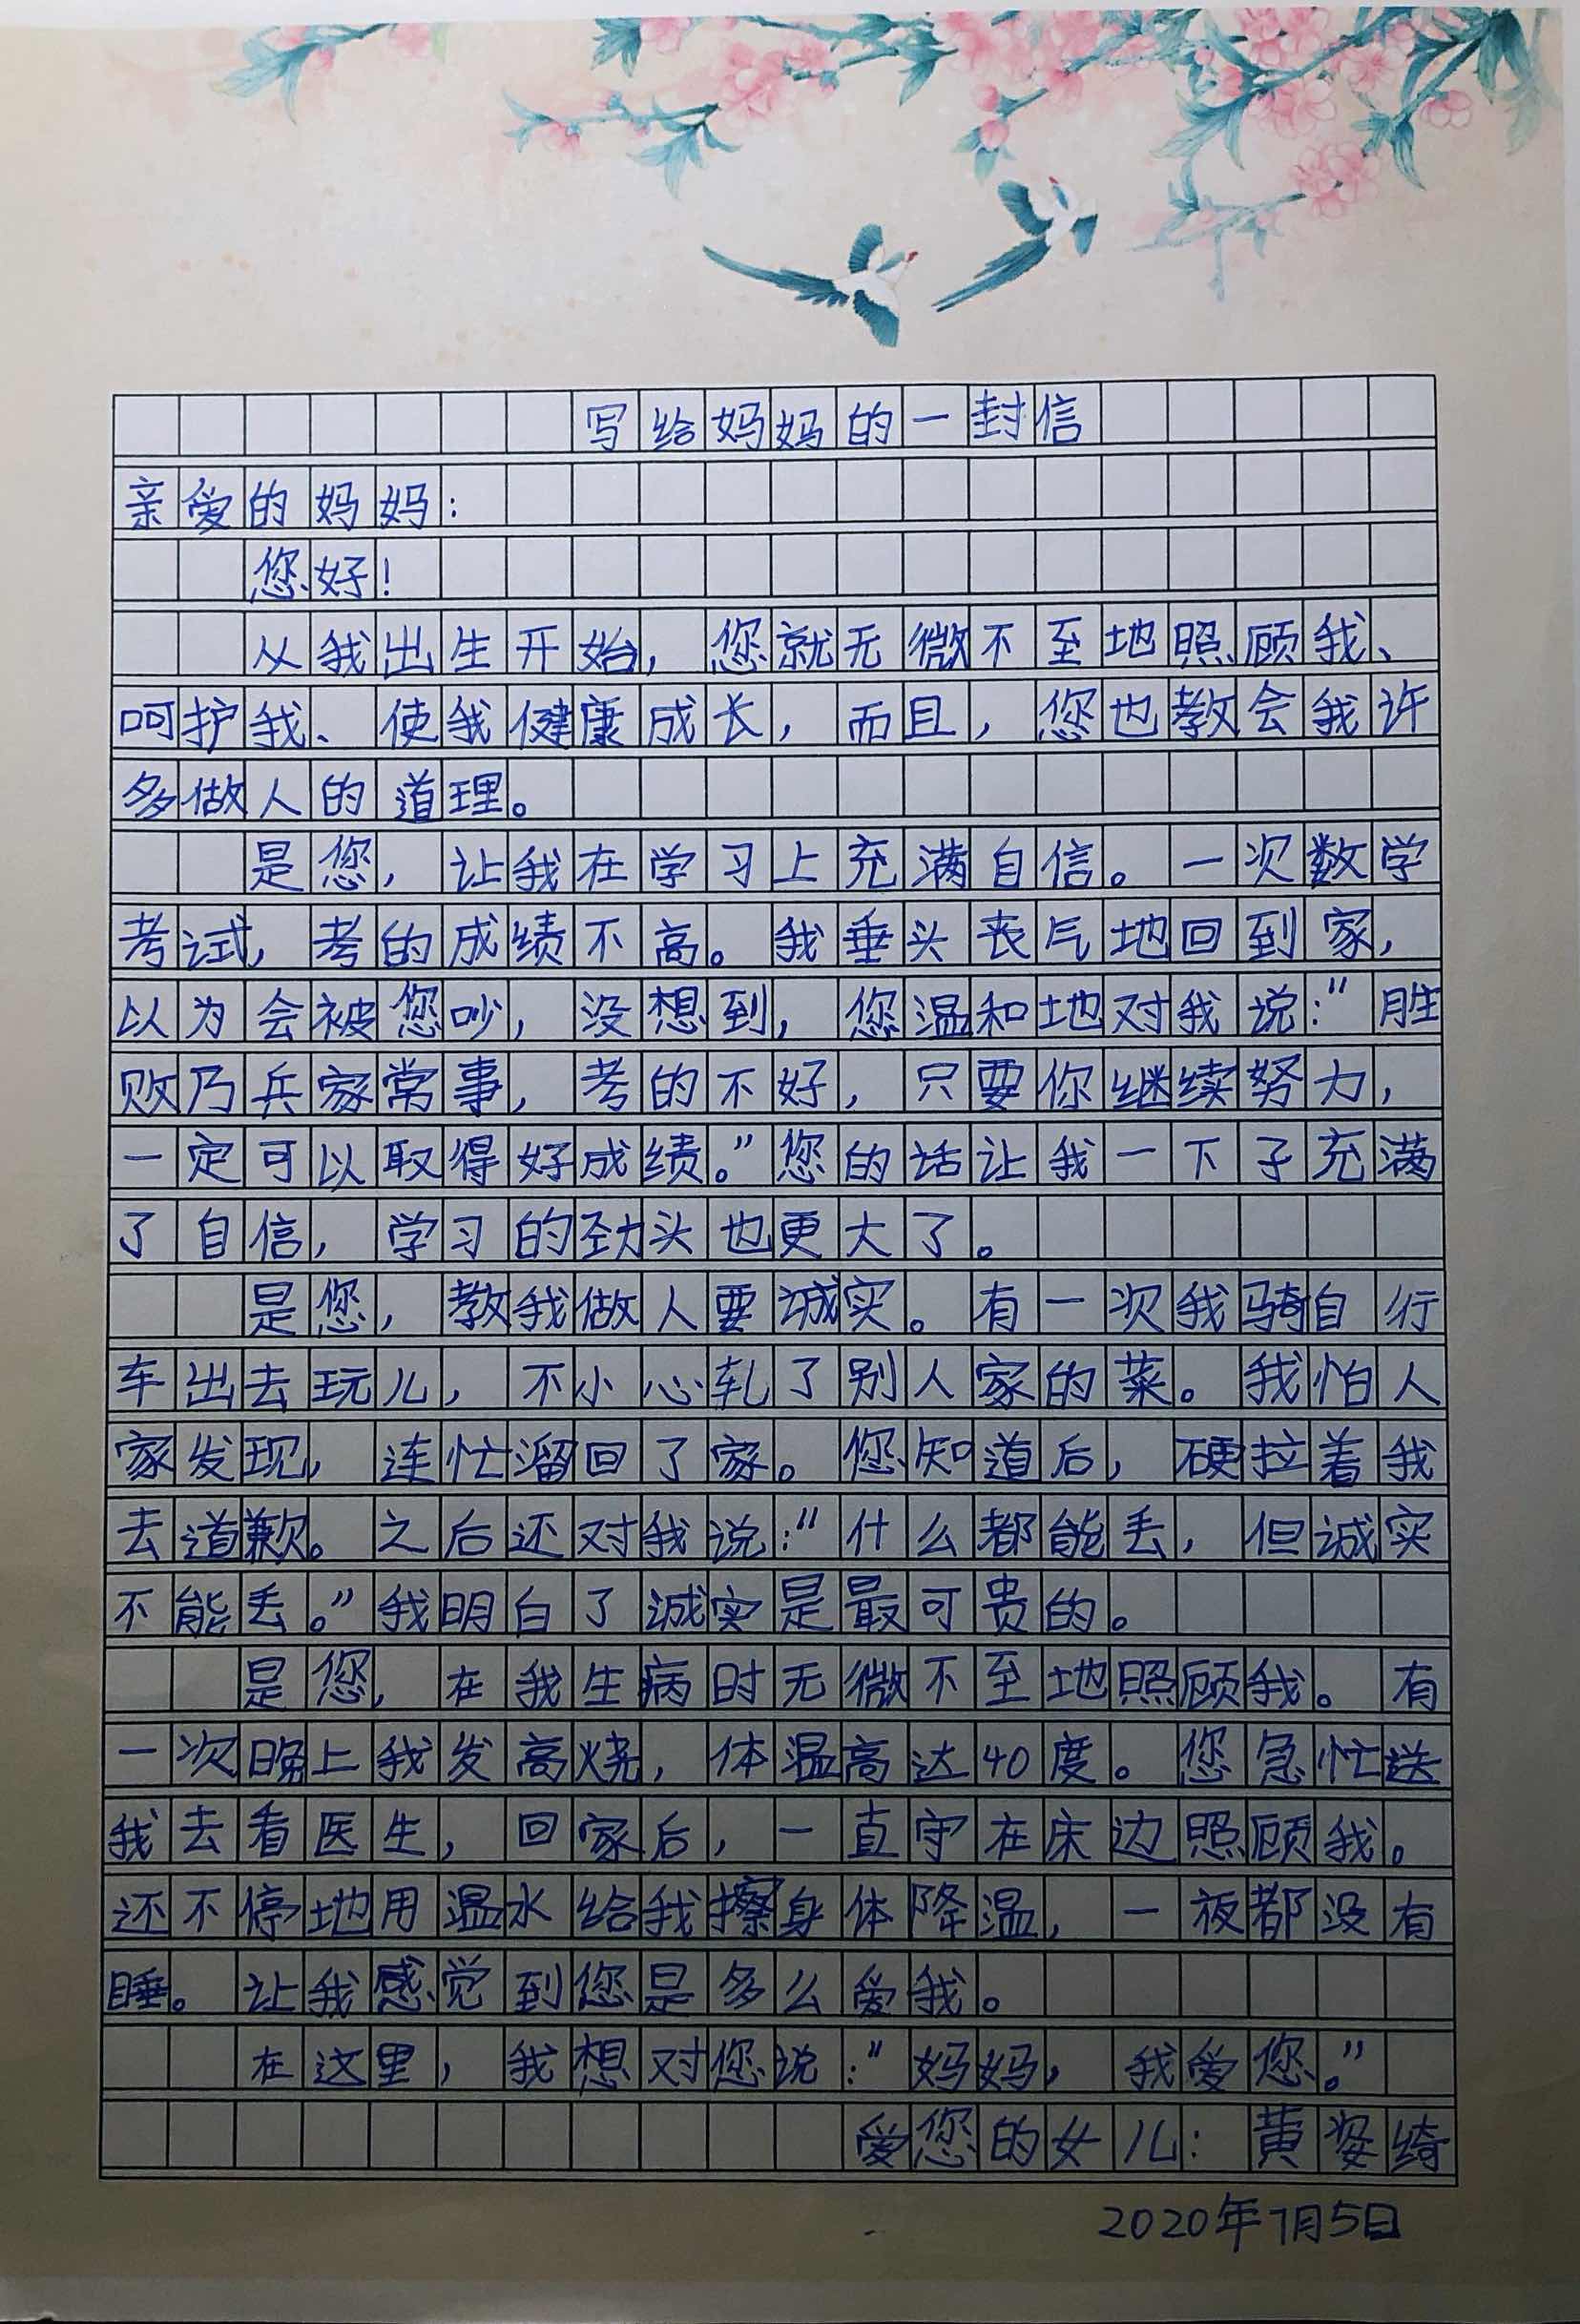 写给妈妈的一封信
亲爱的妈妈：
您好！
从我出生开始，您就无微不至地照顾我、
呵护我、使我健康成长，而且，您也教会我许
多做人的道理。
是您，让我在学习上充满自信。一次数学
考试，考的成绩不高。我垂头丧气地回到家，
以为会被您吵，没想到，您温和地对我说：“胜
败乃兵家常事，考的不好，只要你继续努力，
一定可以取得好成绩。”您的话让我一下子充满
了自信，学习的劲头也更大了。
是您，教我做人要诚实。有一次我骑自行
车出去玩儿，不小心轧了别人家的菜。我怕人
家发现，连忙溜回了家。您知道后，硬拉着我
去道歉。之后还对我说：“什么都能丢，但诚实
不能丢。”我明白了诚实是最可贵的。
是您，在我生病时无微不至地照顾我。有
一次晚上我发高烧，体温高达40度。您急忙送
我去看医生，回家后，一直守在床边照顾我。
还不停地用温水给我擦身体降温，一夜都没有
睡。让我感觉到您是多么爱我。
在这里，我想对您说：“妈妈，我爱您。”
爱您的女儿：黄姿绮
2020年7月5日